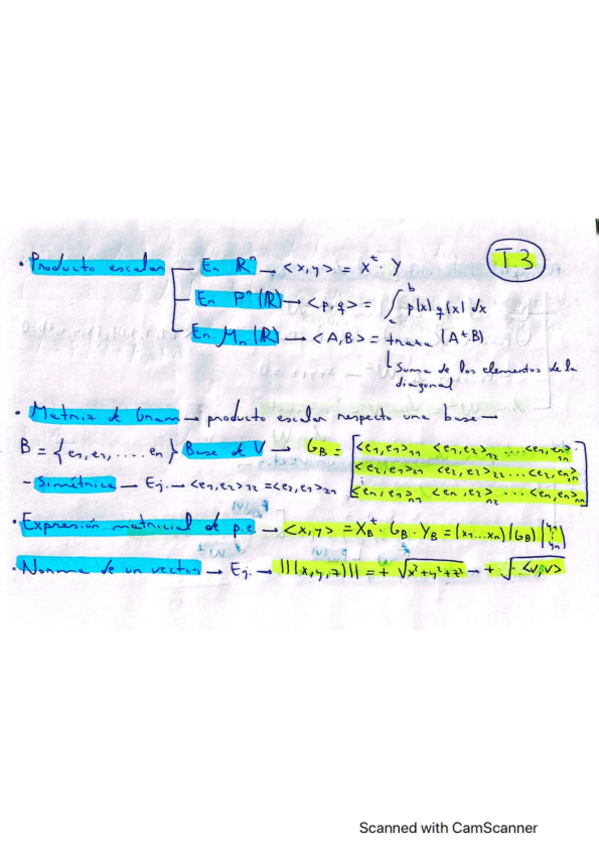 T.3
· Producto escalar — En ℝⁿ → <x,y> = Xᵗ · Y
En Pⁿ(ℝ) → <p,q> = ∫ₐᵇ p(x) q(x) dx
En Mₙ(ℝ) → <A,B> = traza (Aᵗ·B)
↳ Suma de los elementos de la diagonal
· Matriz de Gram → producto escalar respecto una base →
B = {e₁, e₂, ..... eₙ} Base de V → G_B = [<e₁,e₁>₁₁ <e₁,e₂>₁₂ .... <e₁,eₙ>₁ₙ
<e₂,e₁>₂₁ <e₂,e₂>₂₂ ... <e₂,eₙ>₂ₙ
- Simétrica → Ej. → <e₁,e₂>₁₂ = <e₂,e₁>₂₁ <eₙ,e₁>ₙ₁ <eₙ,e₂>ₙ₂ ... <eₙ,eₙ>ₙₙ]
· Expresión matricial de p.e → <x,y> = X_Bᵗ · G_B · Y_B = (x₁...xₙ) (G_B) (y₁ ⋮ yₙ)
· Norma de un vector → Ej. → ||(x,y,z)|| = + √x²+y²+z² → + √<v,v>
Scanned with CamScanner